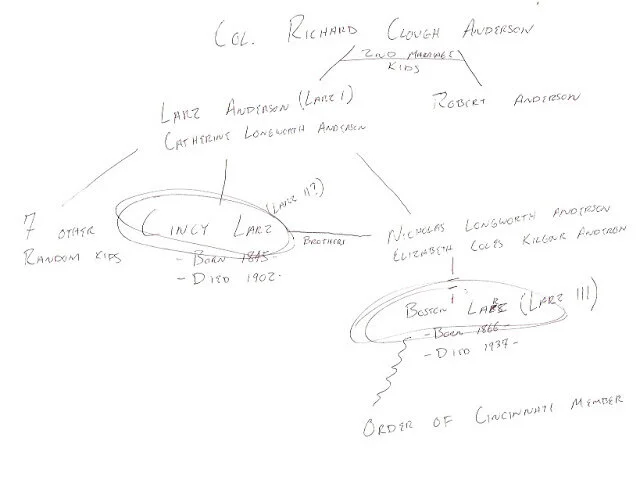 COL. RICHARD CLOUGH ANDERSON
2ND MARRIAGE
KIDS
LARZ ANDERSON (LARZ I)
CATHERINE LONGWORTH ANDERSON
ROBERT ANDERSON
(LARZ II?)
7 OTHER
RANDOM KIDS
CINCY LARZ
- BORN 1845 -
- DIED 1902 -
BROTHERS
NICHOLAS LONGWORTH ANDERSON
ELIZABETH COLES KILGOUR
BOSTON LARZ (LARZ III)
- BORN 1866 -
- DIED 1937 -
ORDER OF CINCINNATI MEMBER